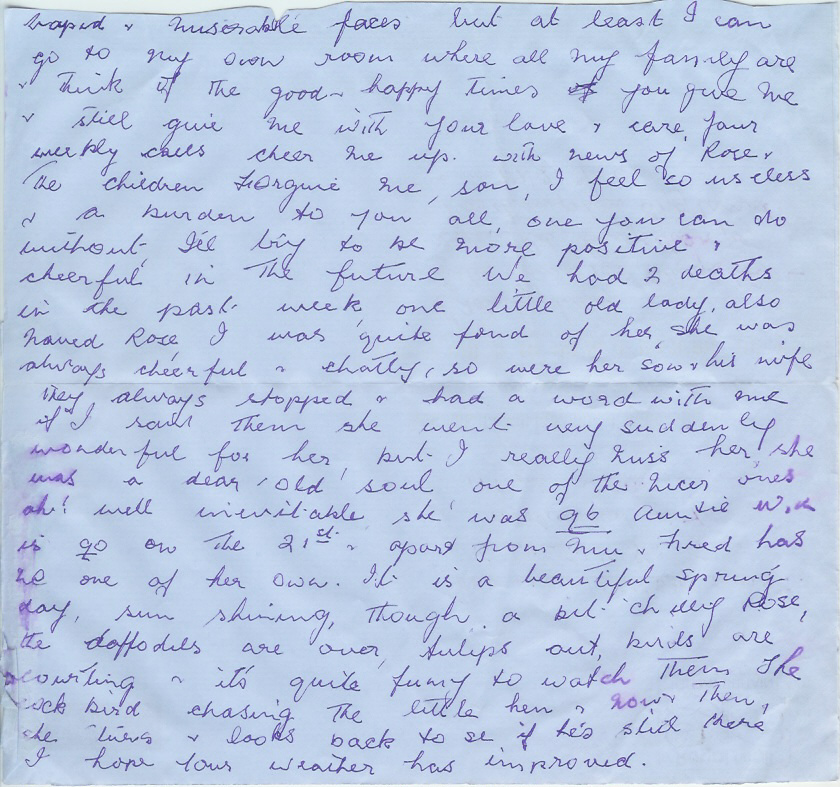 vapid & miserable faces but at least I can
go to my own room where all my family are
& think of the good & happy times you give me
& still give me with your love & care, your
weekly calls cheer me up. with news of Rose &
the children Forgive me, son, I feel so useless
& a burden to you all, one you can do
without, I'll try to be more positive &
cheerful in the future We had 2 deaths
in the past week one little old lady, also
named Rose I was quite fond of her, she was
always cheerful & chatty, so were her son & his wife
they always stopped & had a word with me
if I saw them she went very suddenly
wonderful for her, but I really miss her, she
was a dear old soul one of the nicer ones
ah! well inevitable she was 96 Auntie Win
is 90 on the 21st & apart from Mu & Fred has
no one of her own. It is a beautiful spring
day, sun shining, though a bit chilly Rose,
the daffodils are over, tulips out, birds are
courting & it's quite funny to watch them The
cock bird chasing the little hen & now & then,
she turns & looks back to se if he's still there
I hope your weather has improved.